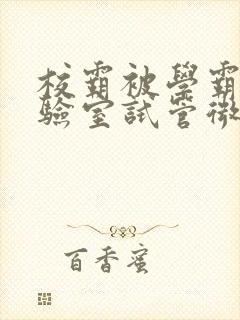 校霸被学霸
驗室試管微
百香蜜